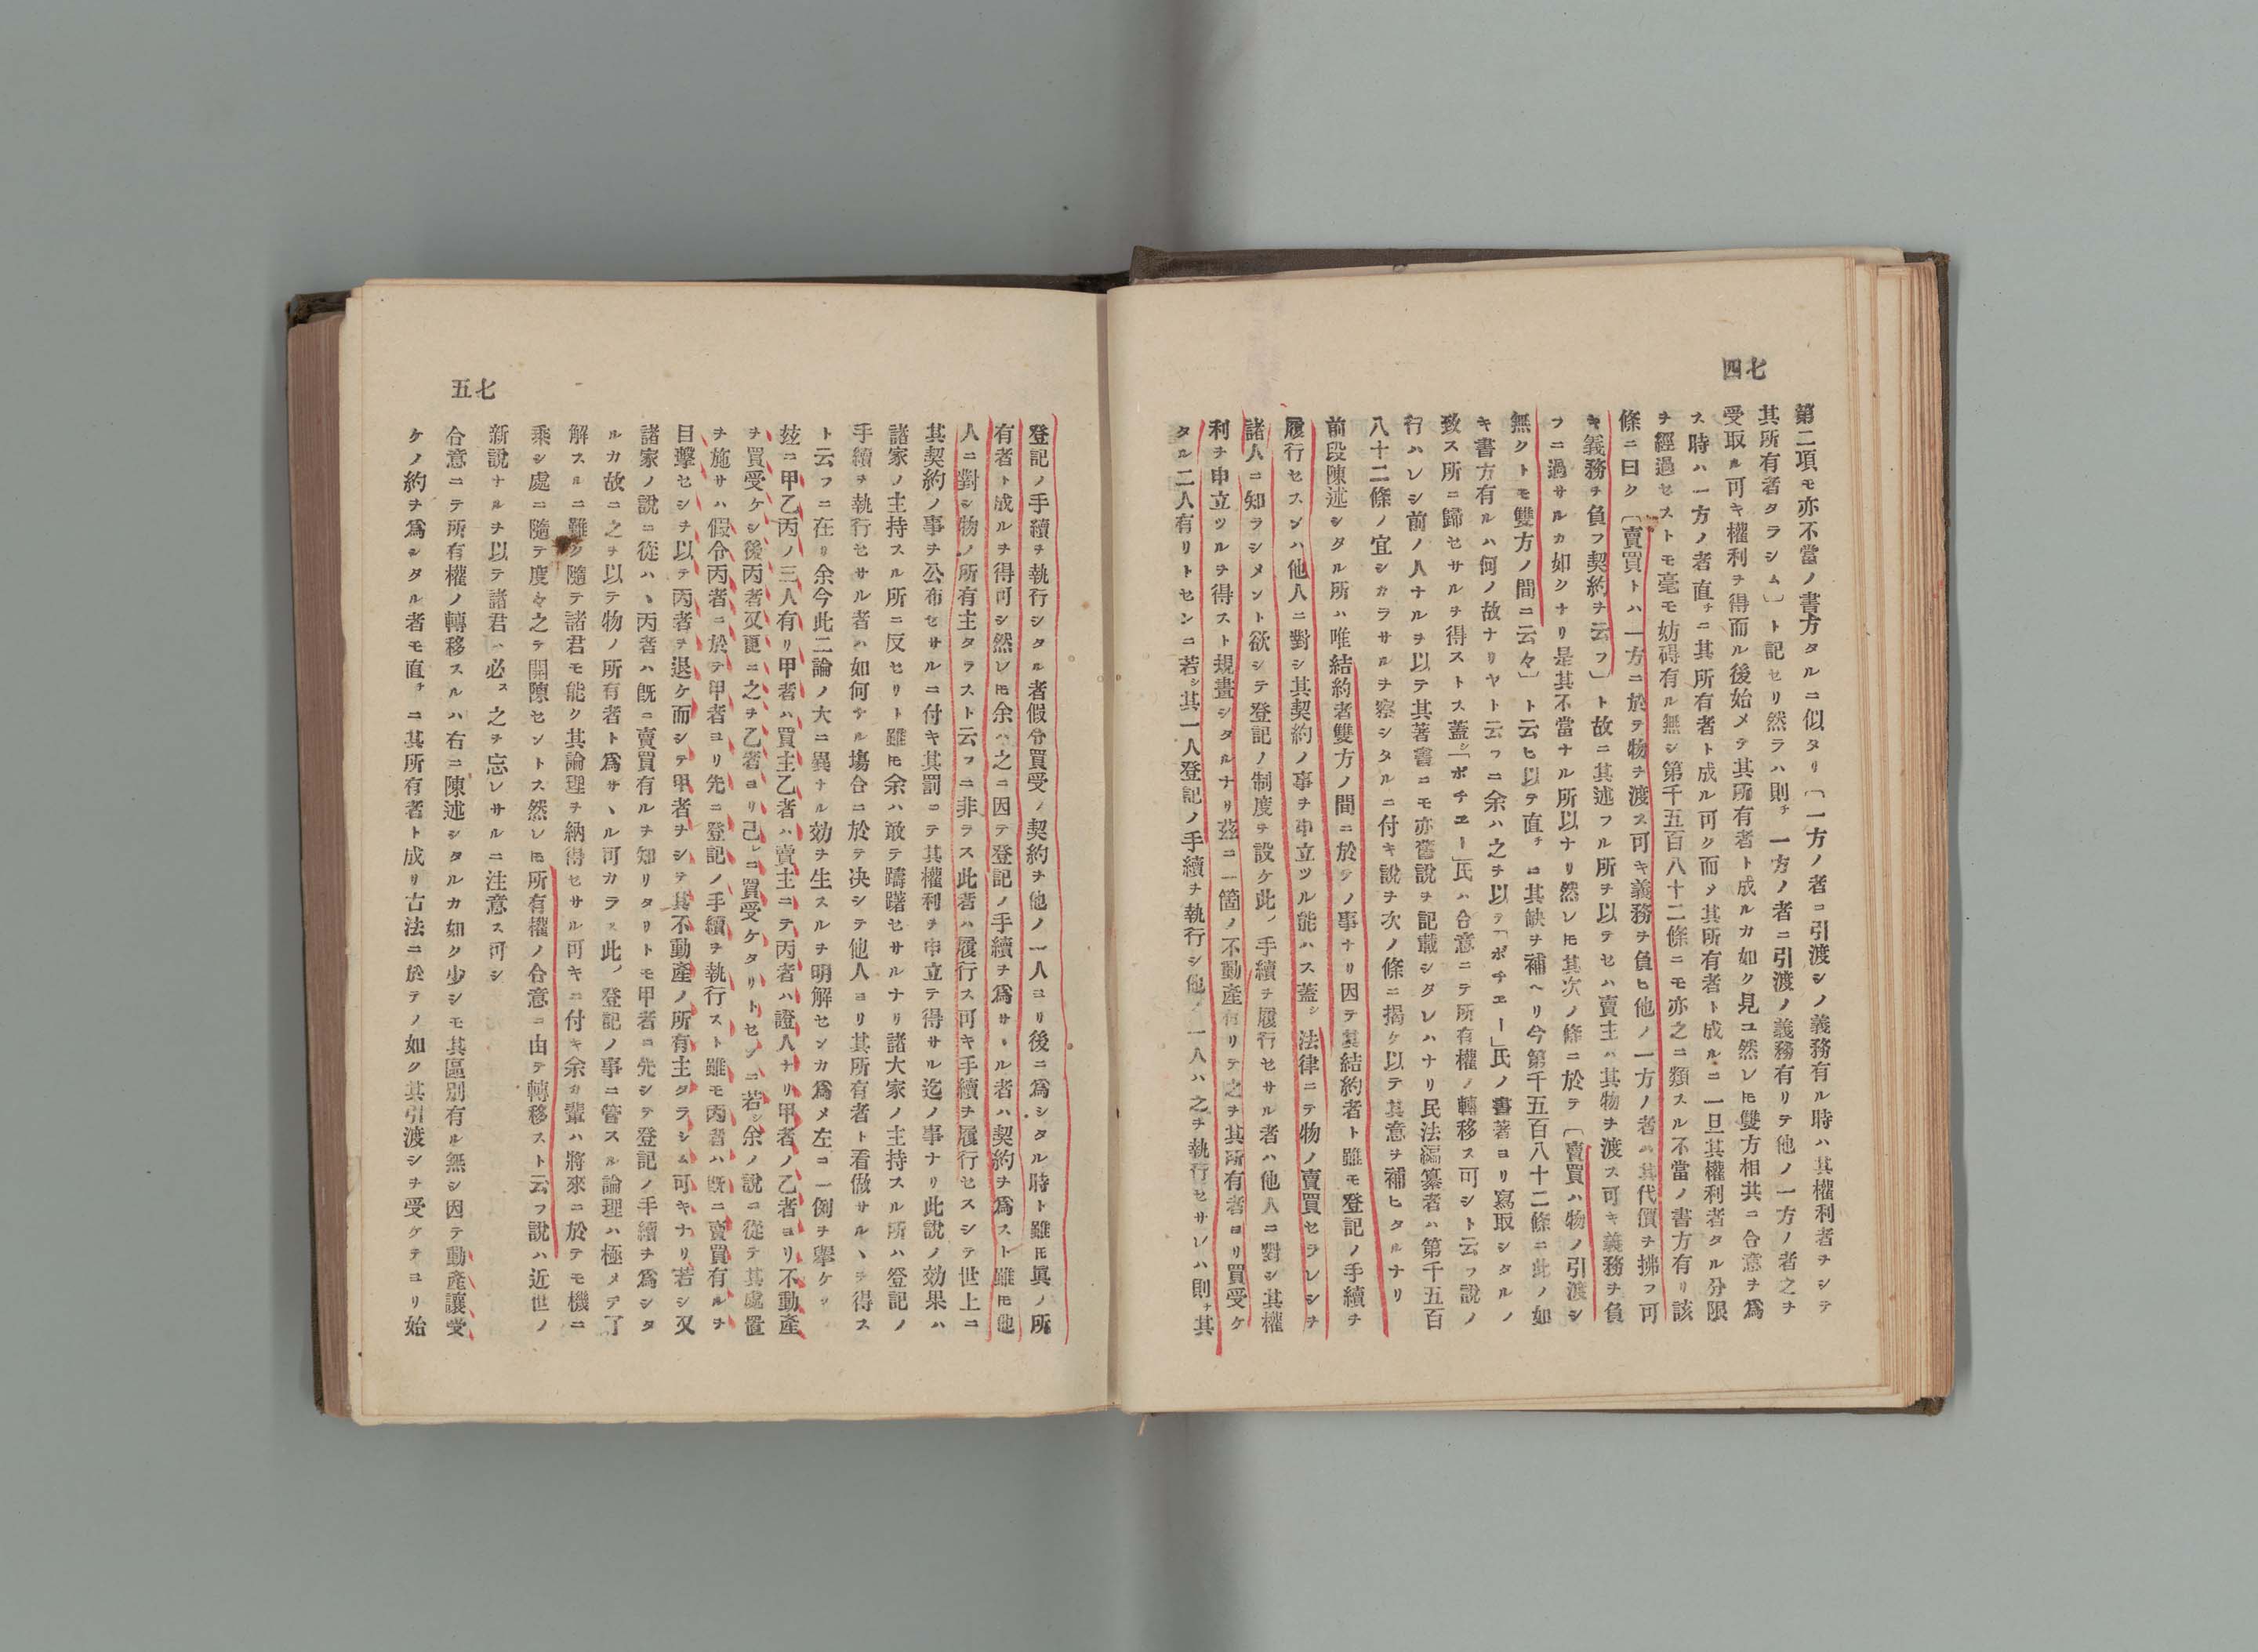 七四
第二項モ亦不當ノ書方タルニ似タリ〔一方ノ者ニ引渡シノ義務有ル時ハ其權利者チシテ
其所有者タラシム〕ト記セリ然ラハ則チ一方ノ者ニ引渡ノ義務有リテ他ノ一方ノ者之チ
受取ル可キ權利チ得而ル後始メテ其所有者ト成ルカ如ク見ユ然レ𪜈雙方相其ニ合意チ爲
ス時ハ一方ノ者直チニ其所有者ト成ル可ク而メ其所有者ト成ルニ一旦其權利者タル分限
チ經過セストモ毫モ妨碍有ル無シ第千五百八十二條ニモ亦之ニ類スル不當ノ書方有リ該
條ニ曰ク〔賣買トハ一方ニ於テ物チ渡ス可キ義務チ負ヒ他ノ一方ノ者ハ其代價チ拂フ可
キ義務チ負フ契約チ云フ〕ト故ニ其述フル所ヲ以テセハ賣主ハ其物ヲ渡ス可キ義務チ負
フニ過サルカ如シナリ是其不當ナル所以ナリ然レ𪜈其次ノ條ニ於テ〔賣買ハ物ノ引渡シ
無クトモ雙方ノ間ニ云々〕ト云ヒ以テ直チニ其缺ヲ補ヘリ今第千五百八十二條ニ此ノ如
キ書方有ルハ何ノ故ナリヤト云フニ余ハ之ヲ以テ「ポチエー」氏ノ書著ヨリ寫取シタルノ
致ス所ニ歸セサルチ得ストス蓋シ「ポチエー」氏ハ合意ニテ所有權ノ轉移ス可シト云フ說ノ
行ハレシ前ノ人ナルヲ以テ其著書ニモ亦舊說ヲ記載シタレハナリ民法編纂者ハ第千五百
八十二條ノ宜シカラサルチ察シタルニ付キ說ヲ次ノ條ニ揭ケ以テ其意ヲ補ヒタルナリ
前段陳述シタル所ハ唯結約者雙方ノ間ニ於テノ事ナリ因テ其結約者ト雖モ登記ノ手續チ
履行セスンハ他人ニ對シ其契約ノ事チ申立ツル能ハス蓋シ法律ニテ物ノ賣買セラレシチ
諸人ニ知ラシメント欲シテ登記ノ制度チ設ケ此ノ手續チ履行セサル者ハ他人ニ對シ其權
利チ申立ツルヲ得スト規畫シタルナリ茲ニ一箇ノ不動產有リテ之チ其所有者ヨリ買受ケ
タル二人有リトセンニ若シ其一人登記ノ手續チ執行シ他ノ一人ハ之チ執行セサレハ則チ其
七五
登記ノ手續チ執行シタル者假令買受ノ契約ヲ他ノ一人ヨリ後ニ爲シタル時ト雖𪜈眞ノ所
有者ト成ルチ得可シ然レ𪜈余ハ之ニ因テ登記ノ手續チ爲サヽル者ハ契約ヲ爲スト雖𪜈他
人ニ對シ物ノ所有主タラスト云フニ非ラス此者ハ履行ス可キ手續ヲ履行セスシテ世上ニ
其契約ノ事チ公布セサルニ付キ其罰ニテ其權利チ申立テ得サル迄ノ事ナリ此說ノ効果ハ
諸家ノ主持スル所ニ反セリト雖𪜈余ハ敢テ躊躇セサルナリ諸大家ノ主持スル所ハ登記ノ
手續ヲ執行セサル者ハ如何ナル塲合ニ於テ決シテ他人ヨリ其所有者ト看做サルヽヲ得ス
ト云フニ在リ余今此二論ノ大ニ異ナル効チ生スルチ明解センカ爲メ左ニ一例チ擧ケン
玆ニ甲乙丙ノ三人有リ甲者ハ買主乙者ハ賣主ニテ丙者ハ證人ナリ甲者ノ乙者ヨリ不動產
ヲ買受ケシ後丙者又更ニ之チ乙者ヨリ己レニ買受ケタリトセンニ若シ余ノ說ニ從テ其處置
チ施サハ假令丙者ニ於テ甲者ヨリ先ニ登記ノ手續ヲ執行スト雖モ丙者ハ旣ニ賣買有ルチ
目擊セシチ以テ丙者ヲ退ケ而シテ甲者チシテ其不動產ノ所有主タラシム可キナリ若シ又
諸家ノ說ニ從ハヽ丙者ハ旣ニ賣買有ルチ知リタリトモ甲者ニ先シテ登記ノ手續チ爲シタ
ルカ故ニ之チ以テ物ノ所有者ト爲サヽル可カラス此ノ登記ノ事ニ管スル論理ハ極メテ了
解スルニ難ク隨テ諸君モ能ク其論理チ納得セサル可キニ付キ余カ輩ハ將來ニ於テモ機ニ
乘シ處ニ隨テ度々之テ開陳セントス然レ𪜈所有權ノ合意ニ由テ轉移スト云フ說ハ近世ノ
新說ナルチ以テ諸君ハ必ス之チ忘レサルニ注意ス可シ
合意ニテ所有權ノ轉移スルハ右ニ陳述シタルカ如ク少シモ其區別有ル無シ因テ動產讓受
ケノ約チ爲シタル者モ直チニ其所有者ト成リ古法ニ於テノ如ク其引渡シチ受ケテヨリ始